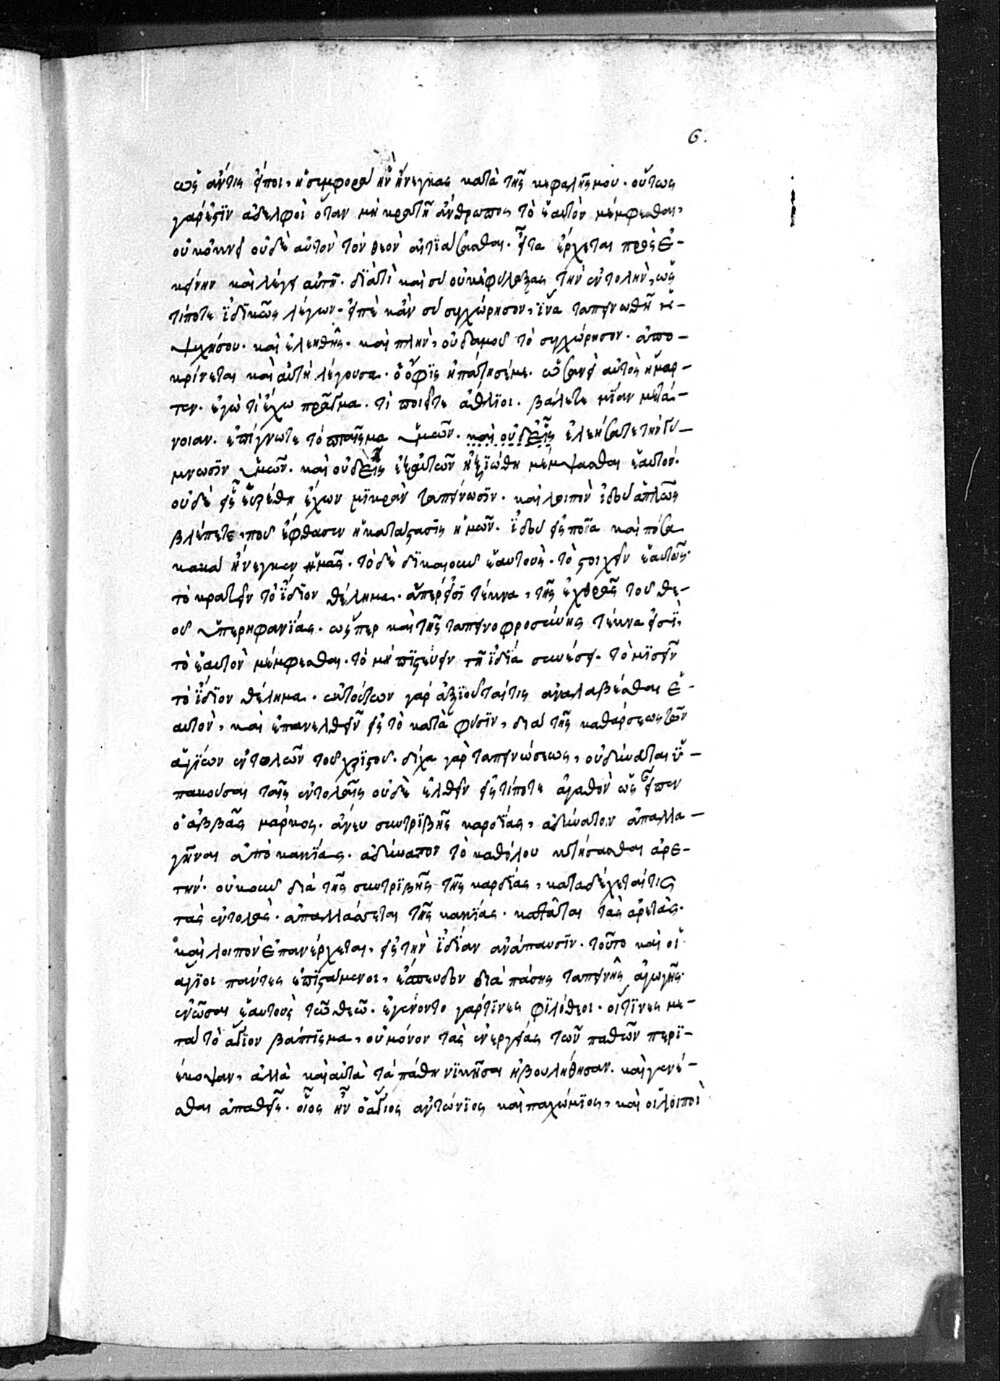 6.
ὡς ἄν τις εἴποι, ἡ συμφορὰ ἣν ἤνεγκας κατὰ τῆς κεφαλῆς μου. οὕτως
γάρ ἐστιν ἀδελφοὶ ὅταν μὴ κρατῆ ἄνθρωπος τὸ ἑαυτὸν μέμφεσθαι,
οὐκ ὀκνεῖ οὐδὲ αὐτὸν τὸν θεὸν αἰτιάσασθαι. εἶτα ἔρχεται πρὸς ἐ-
κείνην καὶ λέγει αὐτῆ. διατί καὶ σὺ οὐκ ἐφύλαξας τὴν ἐντολήν, ὥς
τίποτε ἰδικῶς λέγων. εἰπὲ κἂν σὺ συγχώρησον, ἵνα ταπεινωθῆ ἡ
ψυχή σου. καὶ ἐλεηθῆς. καὶ πλὴν, οὐδαμοῦ τὸ συγχώρησον. ἀπο-
κρίνεται καὶ αὐτὴ λέγουσα. ὁ ὄφις ἠπάτησέ με. ὡσανεὶ αὐτὸς ἥμαρ-
τεν. ἐγὼ τί ἔχω πρᾶγμα. τί ποιεῖτε ἄθλιοι. βάλετε μίαν μετά-
νοιαν. ἐπίγνωτε τὸ πταῖσμα ὑμῶν. καὶ οὐδεὶς ἐλεήσατε τὴν γύ-
μνωσιν ὑμῶν. καὶ οὐδεὶς ἐξ αὐτῶν ἠξιώθη μέμψασθαι ἑαυτόν.
οὐδὲ εἷς εὑρέθη ἔχων μικρὰν ταπείνωσιν. καὶ λοιπὸν ἰδοὺ ἁπλῶς
βλέπετε, ποῦ ἔφθασεν ἡ κατάστασις ἡμῶν. ἰδοὺ εἰς ποῖα καὶ πόσα
κακὰ ἤνεγκεν ἡμᾶς. τὸ δὲ δικαιοῦν ἑαυτοὺς. τὸ στοιχεῖν ἑαυτοῖς.
τὸ κρατεῖν τὸ ἴδιον θέλημα. ἅπερ εἰσὶ τέκνα, τῆς ἐχθρᾶς τοῦ θε-
οῦ ὑπερηφανίας. ὥσπερ καὶ τῆς ταπεινοφροσύνης τέκνα εἰσὶ,
τὸ ἑαυτὸν μέμφεσθαι. τὸ μὴ πιστεύειν τῆ ἰδία συνέσει. τὸ μισεῖν
τὸ ἴδιον θέλημα. ἐκ τούτων γὰρ ἀξιοῦταί τις ἀναλαβέσθαι ἑ-
αυτὸν, καὶ ἐπανελθεῖν εἰς τὸ κατὰ φύσιν, διὰ τῆς καθάρσεως τῶν
ἁγίων ἐντολῶν τοῦ χριστοῦ. δίχα γὰρ ταπεινώσεως, οὐ δύναται ὑ-
πακοῦσαι ταῖς ἐντολαῖς οὐδὲ ἐλθεῖν εἰς τίποτε ἀγαθὸν ὡς εἶπεν
ὁ ἀββᾶς μάρκος. ἄνευ συντριβῆς καρδίας, ἀδύνατον ἀπαλλα-
γῆναι ἀπὸ κακίας. ἀδύνατον τὸ καθόλου κτήσασθαι ἀρε-
τήν. οὐκοῦν διὰ τῆς συντριβῆς τῆς καρδίας, καταδέχεταί τις
τὰς ἐντολὰς. ἀπαλλάσσεται τῆς κακίας. κτᾶται τὰς ἀρετὰς.
καὶ λοιπὸν ἐπανέρχεται, εἰς τὴν ἰδίαν ἀνάπαυσιν. τοῦτο καὶ οἱ
ἅγιοι πάντες ἐπιστάμενοι, ἔσπευδον διὰ πάσης ταπεινῆς ἀγωγῆς
ἑνῶσαι ἑαυτοὺς τῶ θεῶ. ἐγένοντο γάρ τινες φιλόθεοι. οἵτινες με-
τὰ τὸ ἅγιον βάπτισμα, οὐ μόνον τὰς ἐνεργείας τῶν παθῶν περι-
έκοψαν, ἀλλὰ καὶ αὐτὰ τὰ πάθη νικῆσαι ἠβουλήθησαν. καὶ γενέ-
σθαι ἀπαθεῖς. οἷος ἦν ὁ ἅγιος ἀντώνιος καὶ παχώμιος, καὶ οἱ λοιποὶ